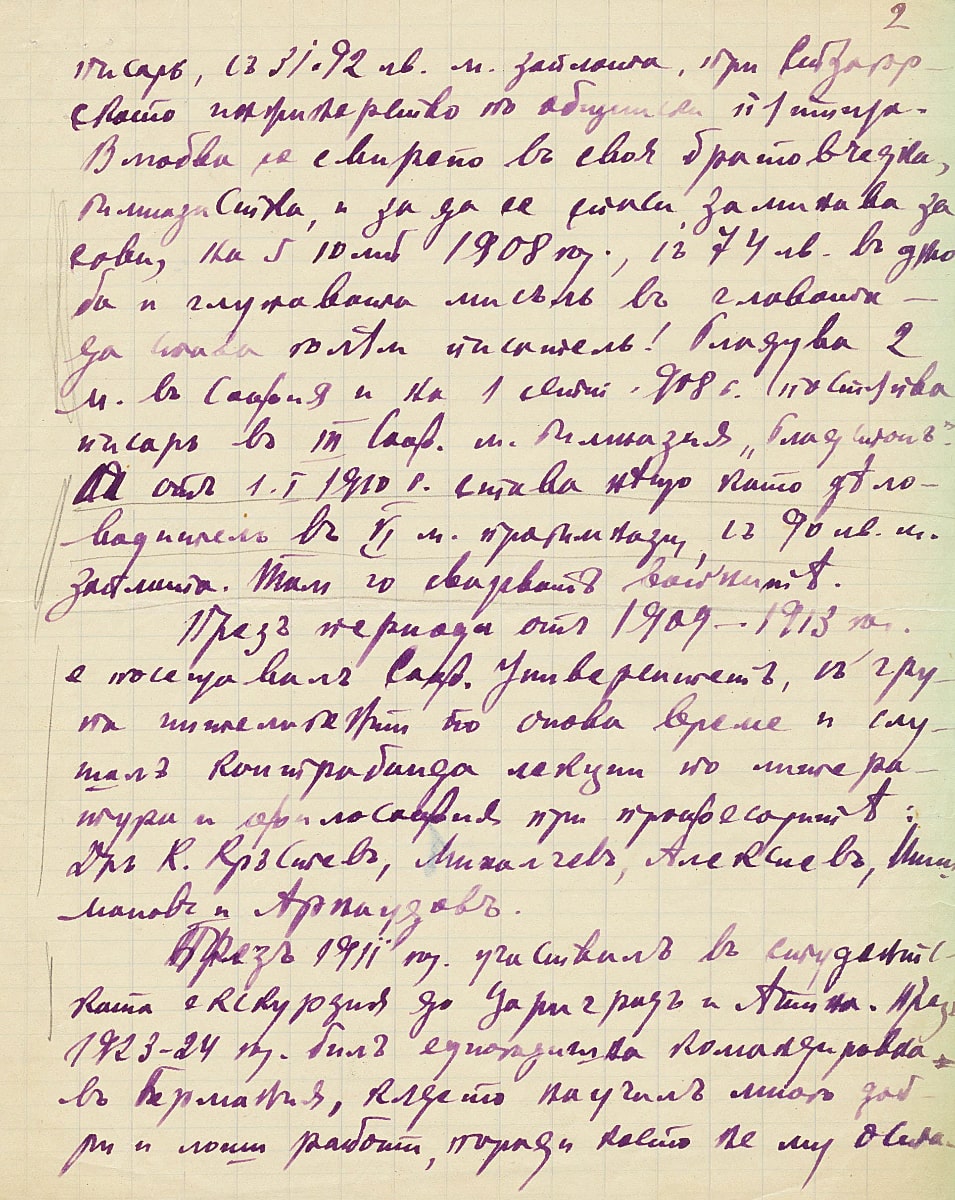 2
писарь, съ 31·92 лв. м. заплата, при
ското инженерство по общински пѫтища.
Влюбва се свирепо въ своя братовчедка,
гимназистка, и за да се спаси, заминава за
София, на 5 юлий 1908 год., съ 74 лв. въ джо
ба и глуповата мисъль въ главата —
да става голѣмъ писатель! Гладува 2
м. въ София и на 1 септ. 908 г. постѫпва
писарь въ III Соф. м. гимназия „Гладстонъ".
А отъ 1.I 1910 г. става нѣщо като дѣло-
водитель въ VI м. прогимназ, съ 90 лв. м.
заплата. Там го сварватъ войнитѣ.
Презъ периода отъ 1909 — 1913 год.
е посещавалъ Соф. Университетъ, съ гру-
па по онова време и слу-
шалъ контрабанда лекции по литера-
тура и философия при професоритѣ:
Дръ К. Кръстевъ, Михалчевъ, Алексиевъ, Шиш
мановъ и Арнаудовъ.
Презъ 1911 год. участвалъ въ студентс-
ката екскурзия до Цариградъ и Атина. Презъ
1923-24 год. билъ едногодишна командировка
въ Германия, кѫдето научилъ много доб-
ри и лоши работи, поради което не му